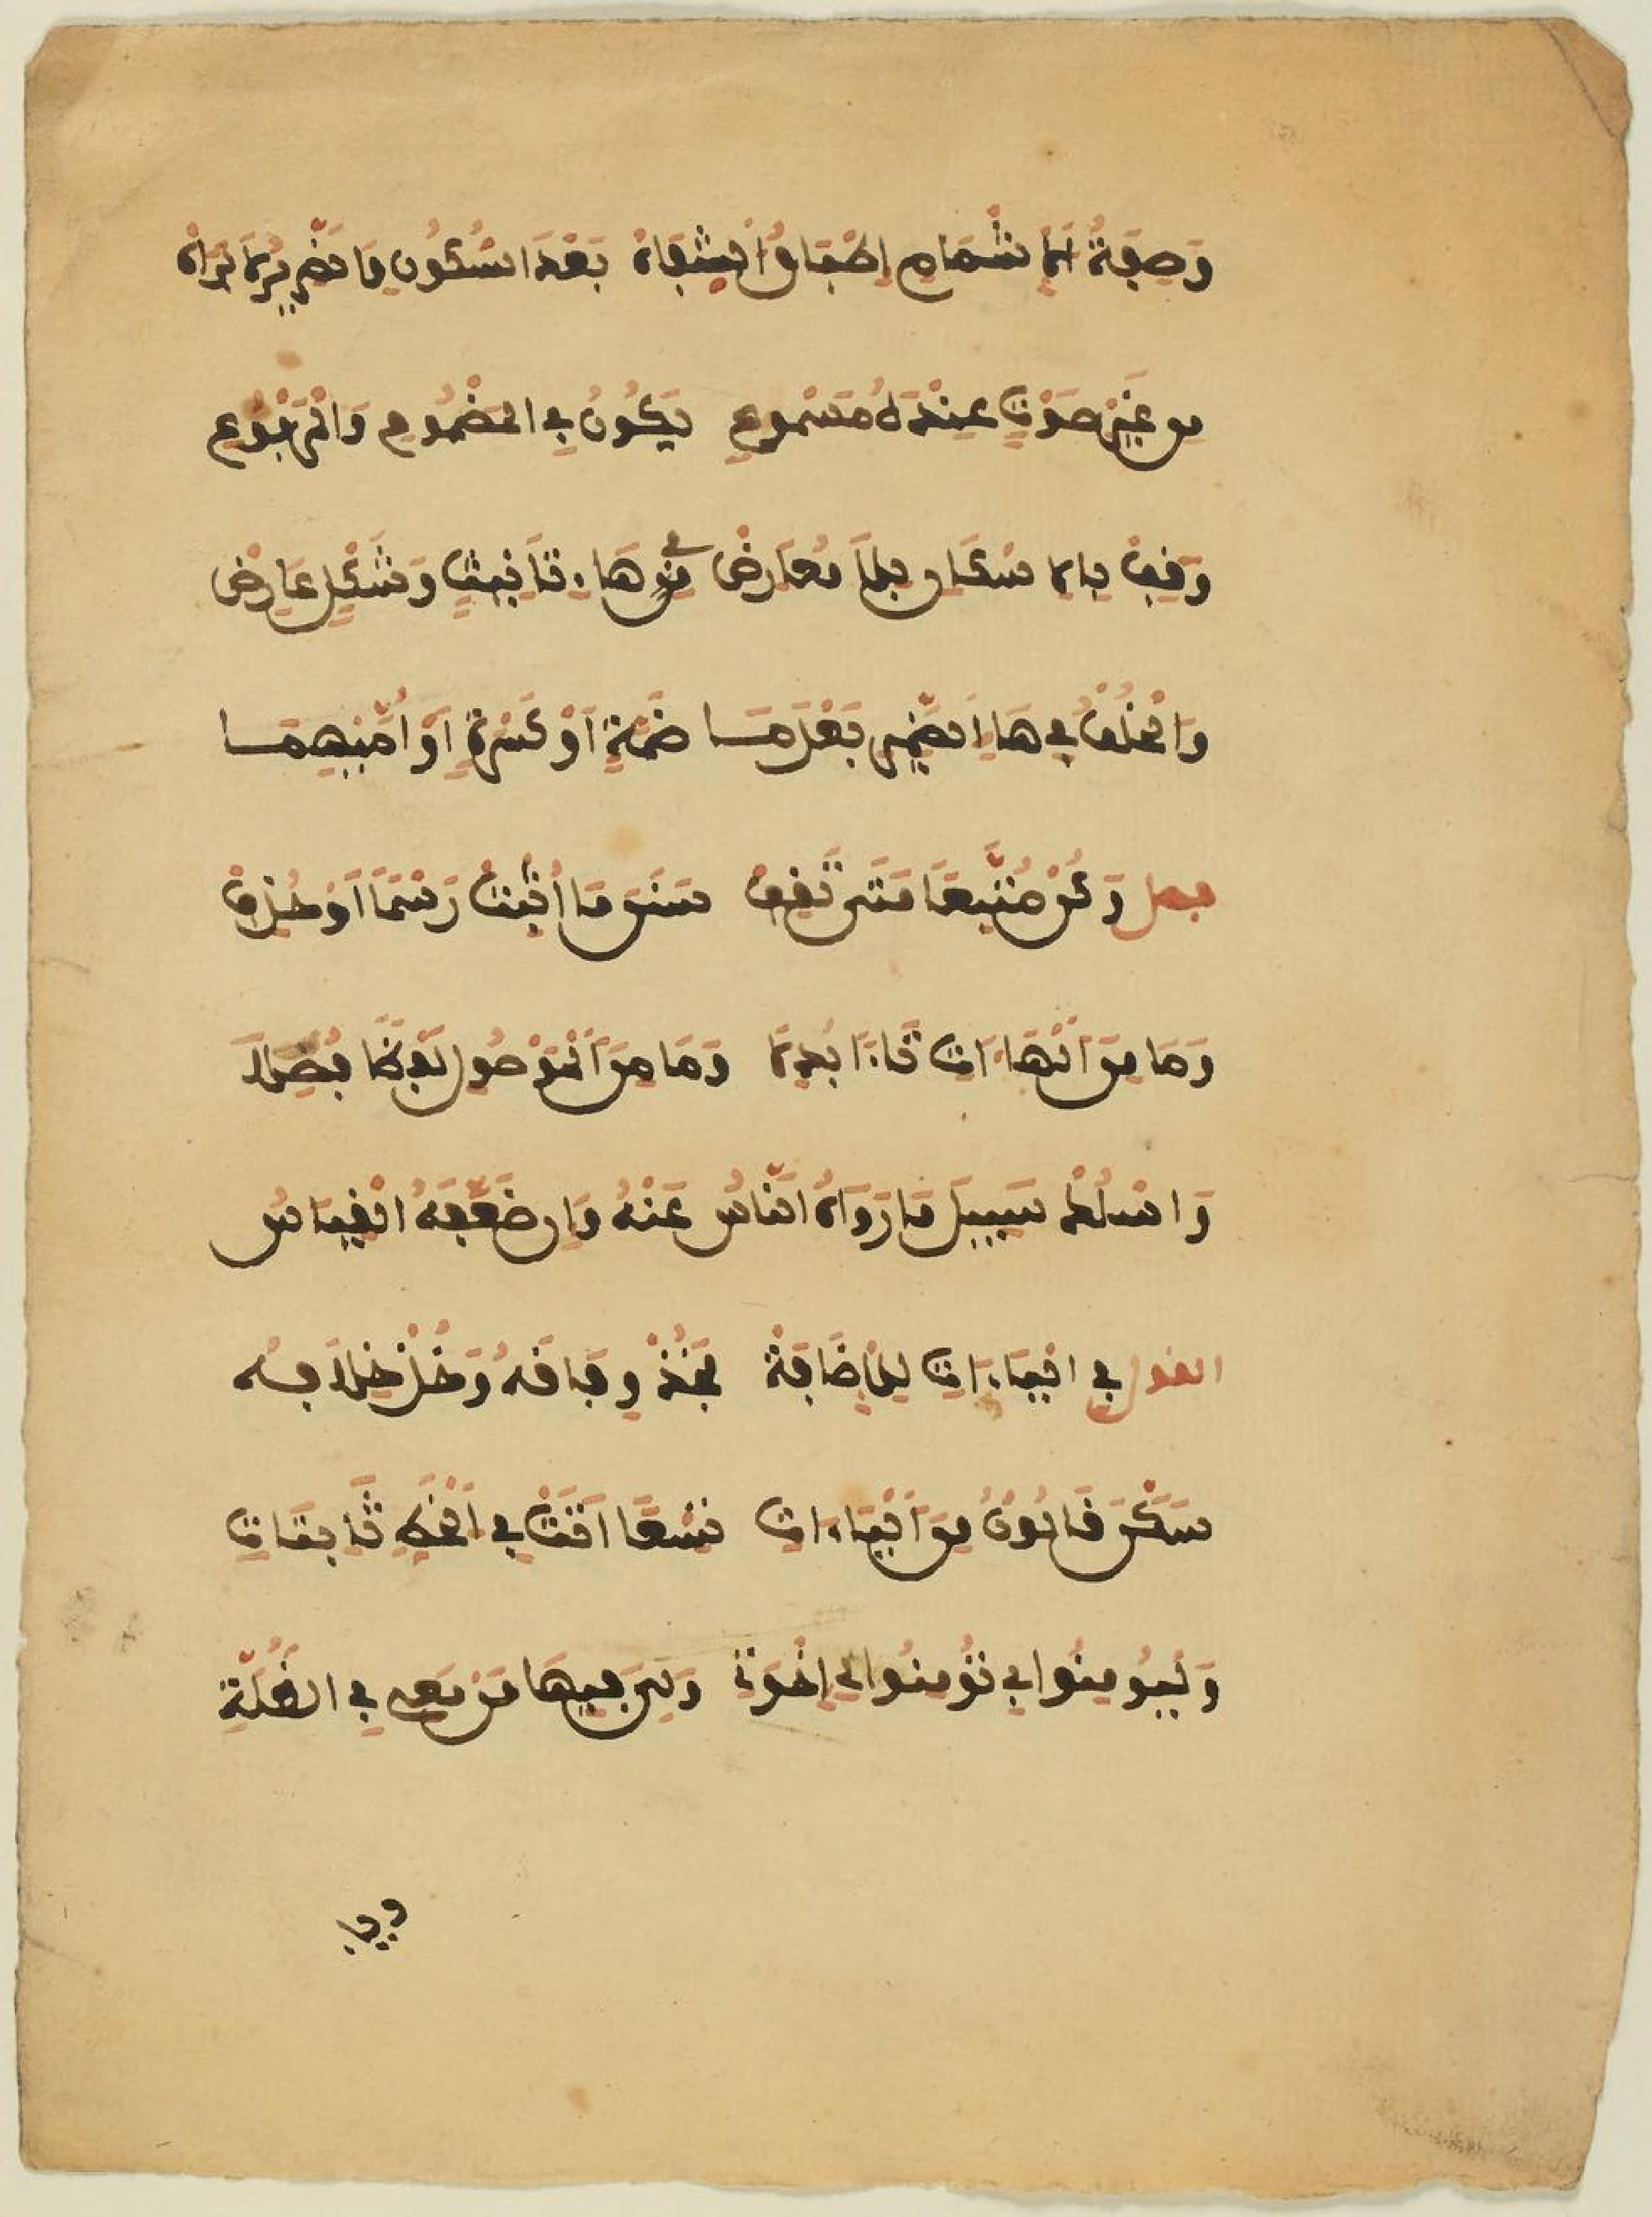 وَصِفَةُ الِاشْمَامِ إِطْبَاقُ الشِّفَاهْ بَعْدَ السُّكُونِ وَالضَّرِيرُ لَا يَرَاهْ
مِن غَيْرِ صَوْتٍ عِنْدَهُ مَسْمُوعِ يَكُونُ فِي الْمَضْمُومِ وَالْمَرْفُوعِ
وَقِفْ بِالِاسْكَانِ بِلَا مُعَارِضْ فِي هَاءِ تَأْنِيثٍ وَشَكْلٍ عَارِضْ
وَالْخُلْفُ فِي هَاءِ الضَّمِيرِ بَعْدَمَا ضَمَّةٍ أَوْ كَسْرَةٍ أَوْ أُمَّيْهِمَا
فصل وَكُنْ مُتَّبِعًا مَتَى تَقِفْ سَنَنَ مَا أُثْبِتْ رَسْمًا أَوْ حُذِفْ
وَمَا مِنَ الْهَاءَاتِ تَاءً أُبْدِلَا وَمَا مِنَ الْمَوْصُولِ لَفْظًا فُصِلَا
وَاسْلُكْ سَبِيلَ مَا رَوَاهُ النَّاسُ عَنْهُ وَإِن ضَعَّفَهُ الْقِيَاسُ
القول فِي الْيَاءَاتِ لِلْإِضَافَةْ فَخُذْ وِفَاقَهُ وَخُذْ خِلَافَهْ
سَكَّنَ قَالُونُ مِنَ الْيَاءَاتِ تِسْعًا أَتَتْ فِي الْخَطِّ ثَابِتَاتِ
وَلْيُومِنُوا بِي تُؤْمِنُوا لِي إِخْوَتِي وَلِيَ فِيهَا مَن مَّعِي فِي الظُّلَّةِ
وَيَا